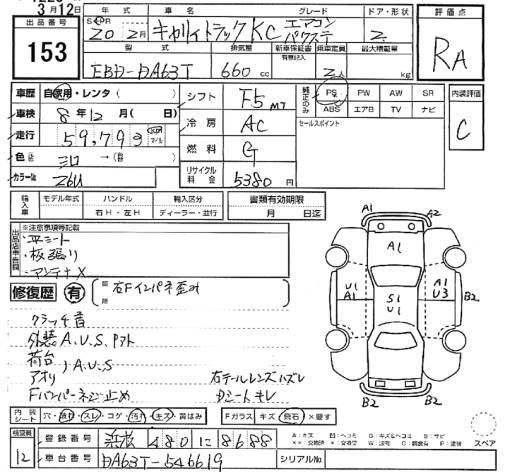 3月12日
出品番号 153
年式 車名 グレード ドア・形状
20 2月 キャリイトラック KC エアコン パワステ 2
型式 排気量 新車保証書 乗車定員 最大積載量
有無記入
EBD-DA63T 660 cc 2人 kg
評価点
RA
車歴 自家用・レンタ( )
車検 8年12月( 日)
走行 59,793
色 シロ →( )
カラーNo. Z6U
シフト F5 MT
冷房 AC
燃料 G
リサイクル料金 5380円
純正のみ PS PW AW SR
ABS エアB TV ナビ
セールスポイント
内装評価
C
輸入車 モデル年式 ハンドル 輸入区分 書類有効期限
年 右H・左H ディーラー・並行 月 日迄
※注意事項等記載
・平シート
・板張り
・アンテナ×
修復歴 有 右Fインパネ歪み
クラッチ音
外装A.U.S.
荷台
アオリ ) A.U.S
Fバンパーネジ止め
右テールレンズハズレ
Dシートキレ
A1 A2
A1
U1 A1 S1 U1 A1 U3
B2
B2
B2 B2
内装シート 穴・汚れ・スレ・コゲ・汚れ・キズ・黄ばみ Fガラス キズ 飛石 ×要す
A:キズ B:ヘコミ G:キズ&ヘコミ S:サビ
スペア
検査員 12
登録番号 浜松 480 に 8688
車台番号 DA63T-546619
シリアルNo.